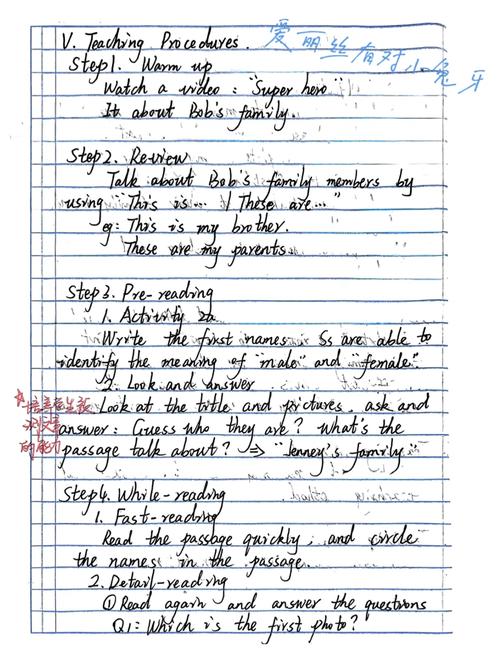 爱丽丝有对小兔牙
V. Teaching Procedures.
Step1. Warm up
Watch a video : "Super hero"
It about Bob's family.
Step2. Review
Talk about Bob's family members by
using "This is... / These are..."
eg: This is my brother.
These are my parents.
Step3. Pre-reading
1. Activity 2a
Write the first names. Ss are able to
identify the meaning of "male" and "female".
2. Look and answer
Look at the title and pictures, ask and
answer: Guess who they are? What's the
passage talk about? => "Jenney's family"
培养学生
的能力
Step4. While-reading
1. Fast-reading
Read the passage quickly, and circle
the names in the passage.
2. Detail-reading
① Read again and answer the questions
Q1: Which is the first photo?